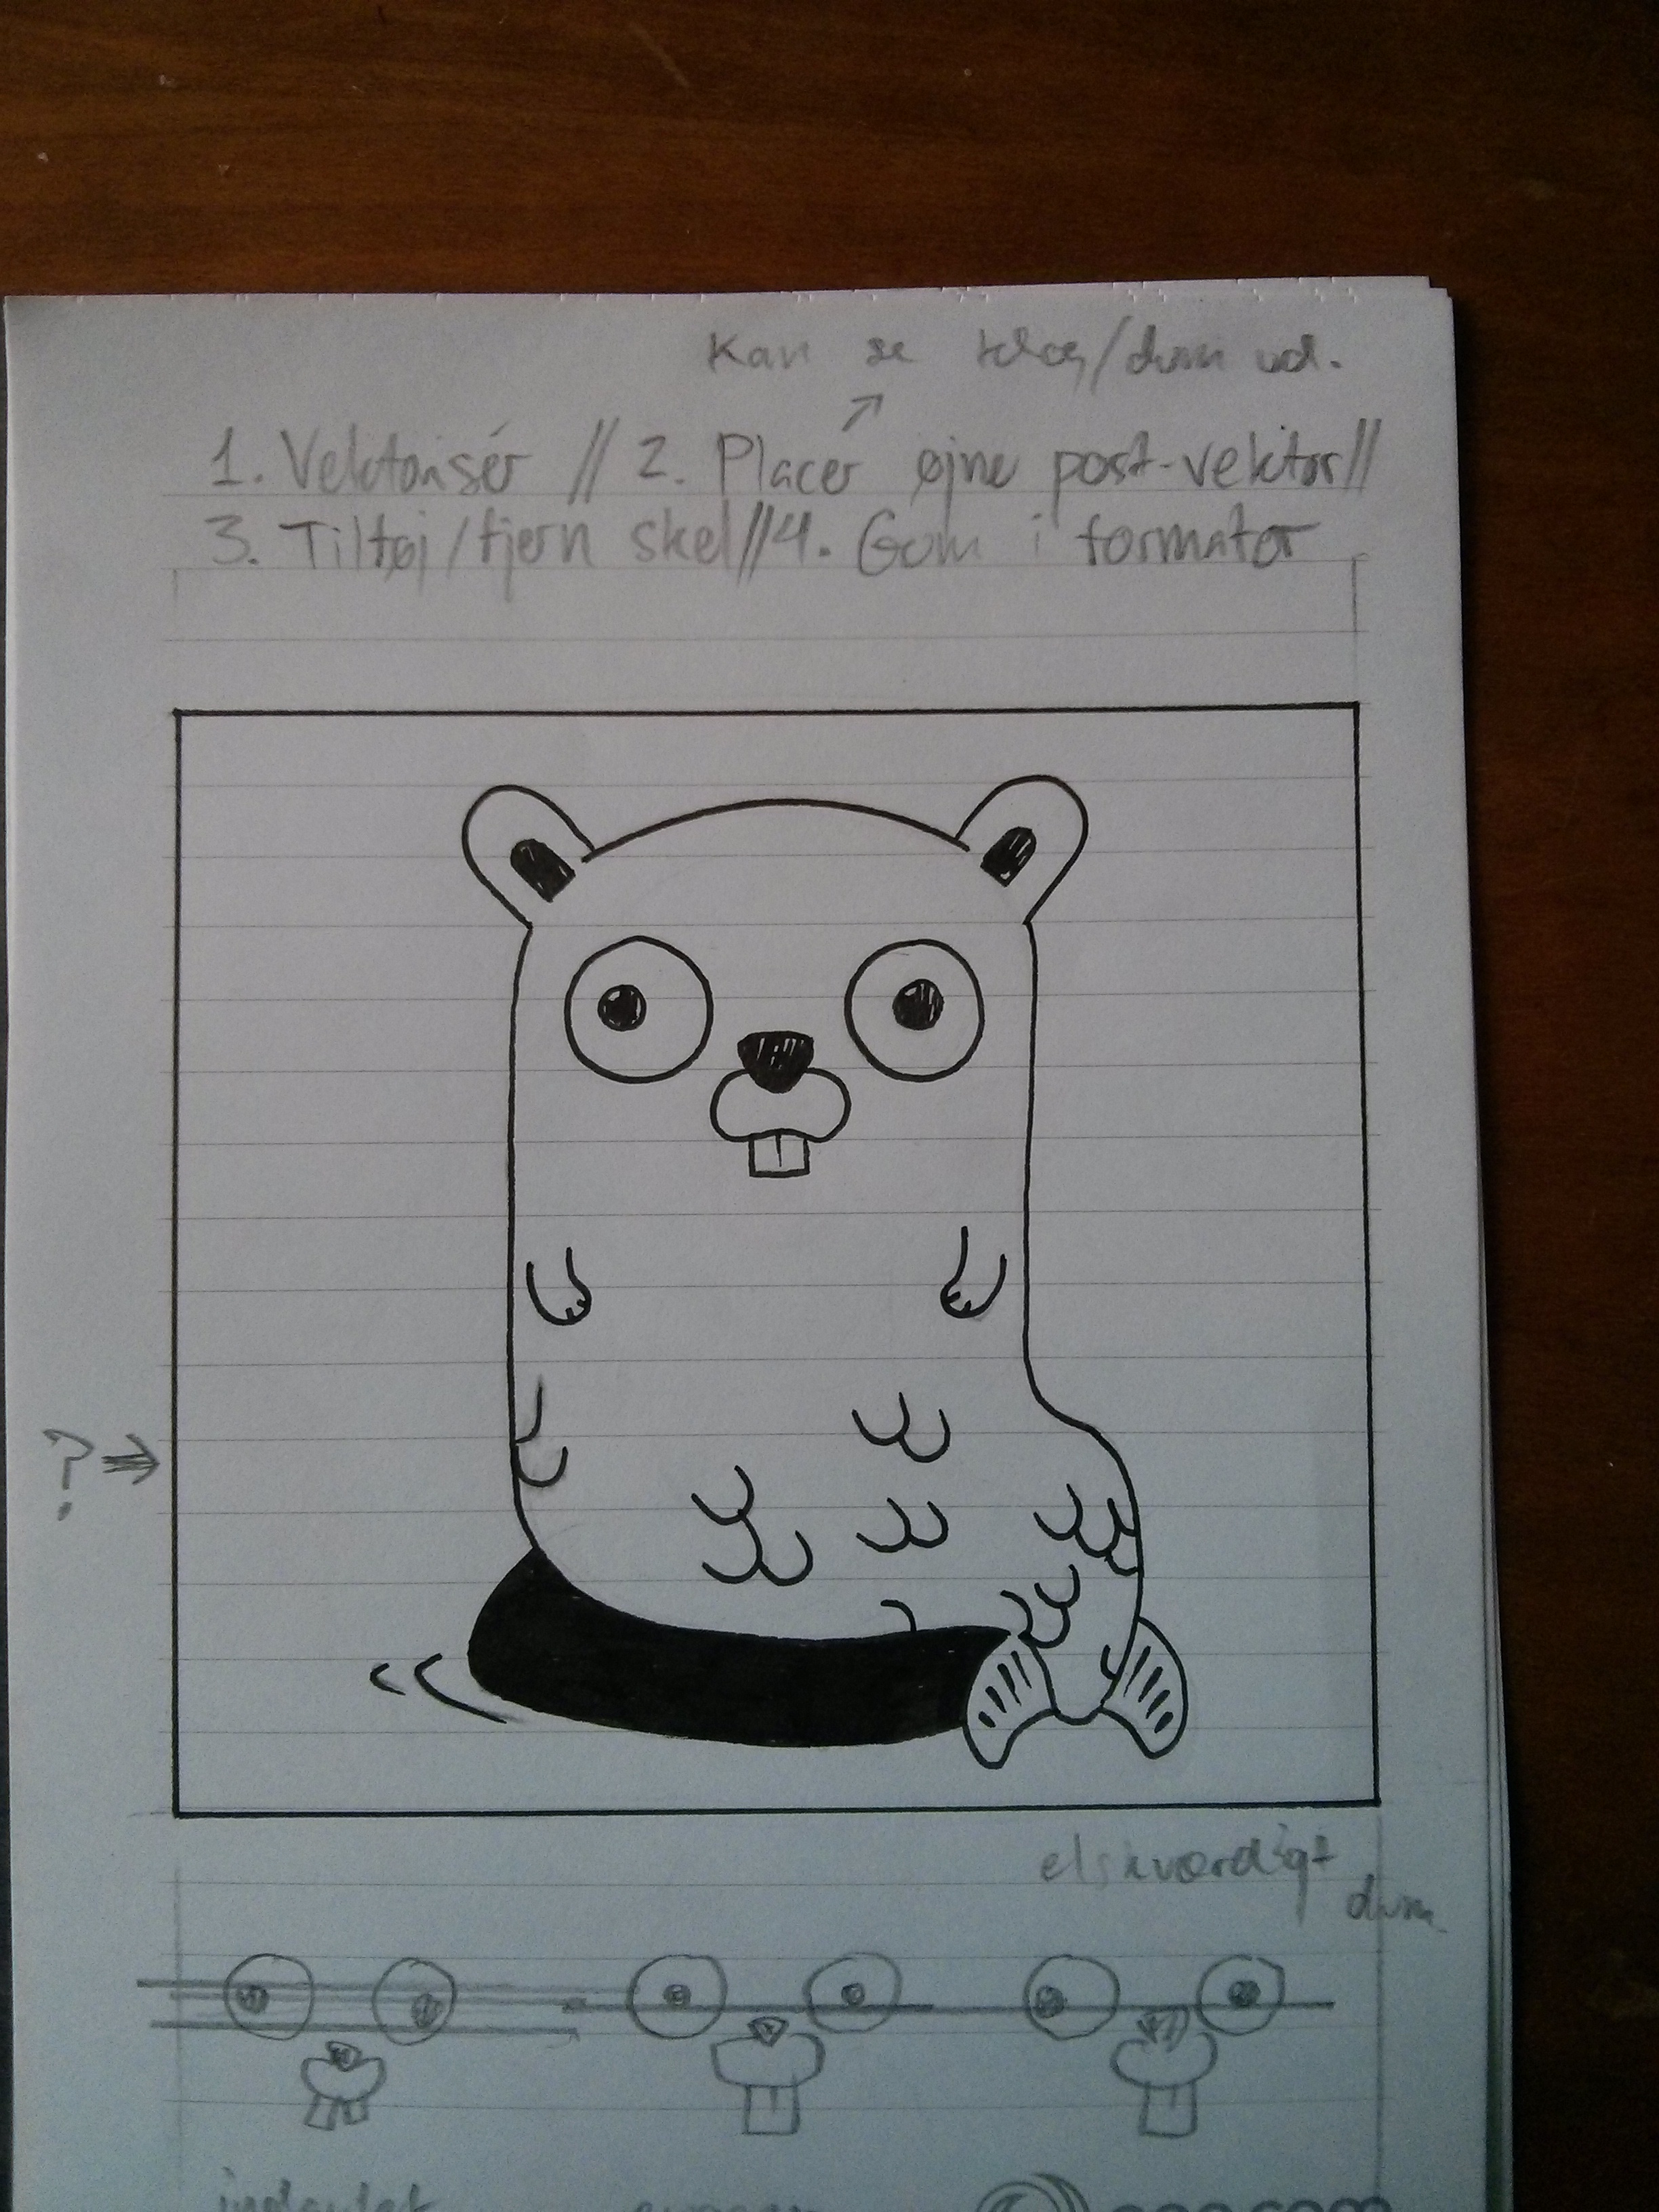 Kan se klog/dum ud.
1. Vektorisér // 2. Placer øjne post-vektor//
3. Tilføj/fjern skel//4. Gem i formater
?
elskværdigt
dum